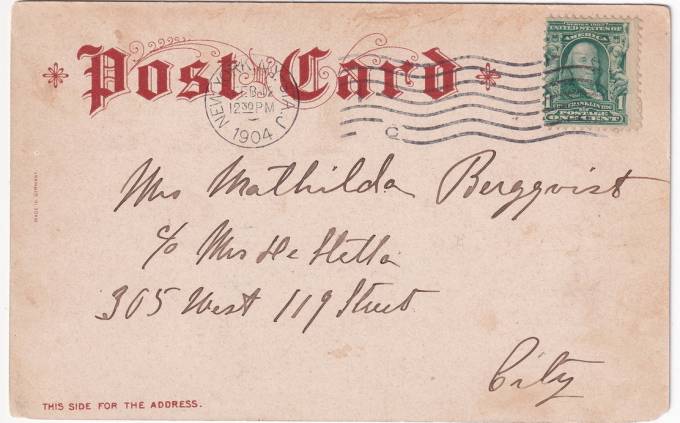 Post Card
NEW YORK, N.Y.
12 30 PM
1904
SERIES 1902
UNITED STATES OF
AMERICA
FRANKLIN
1 1
POSTAGE
ONE CENT
C
Mrs Mathilda Bergqvist
c/o Mrs
305 West 119 Street
City
MADE IN GERMANY.
THIS SIDE FOR THE ADDRESS.